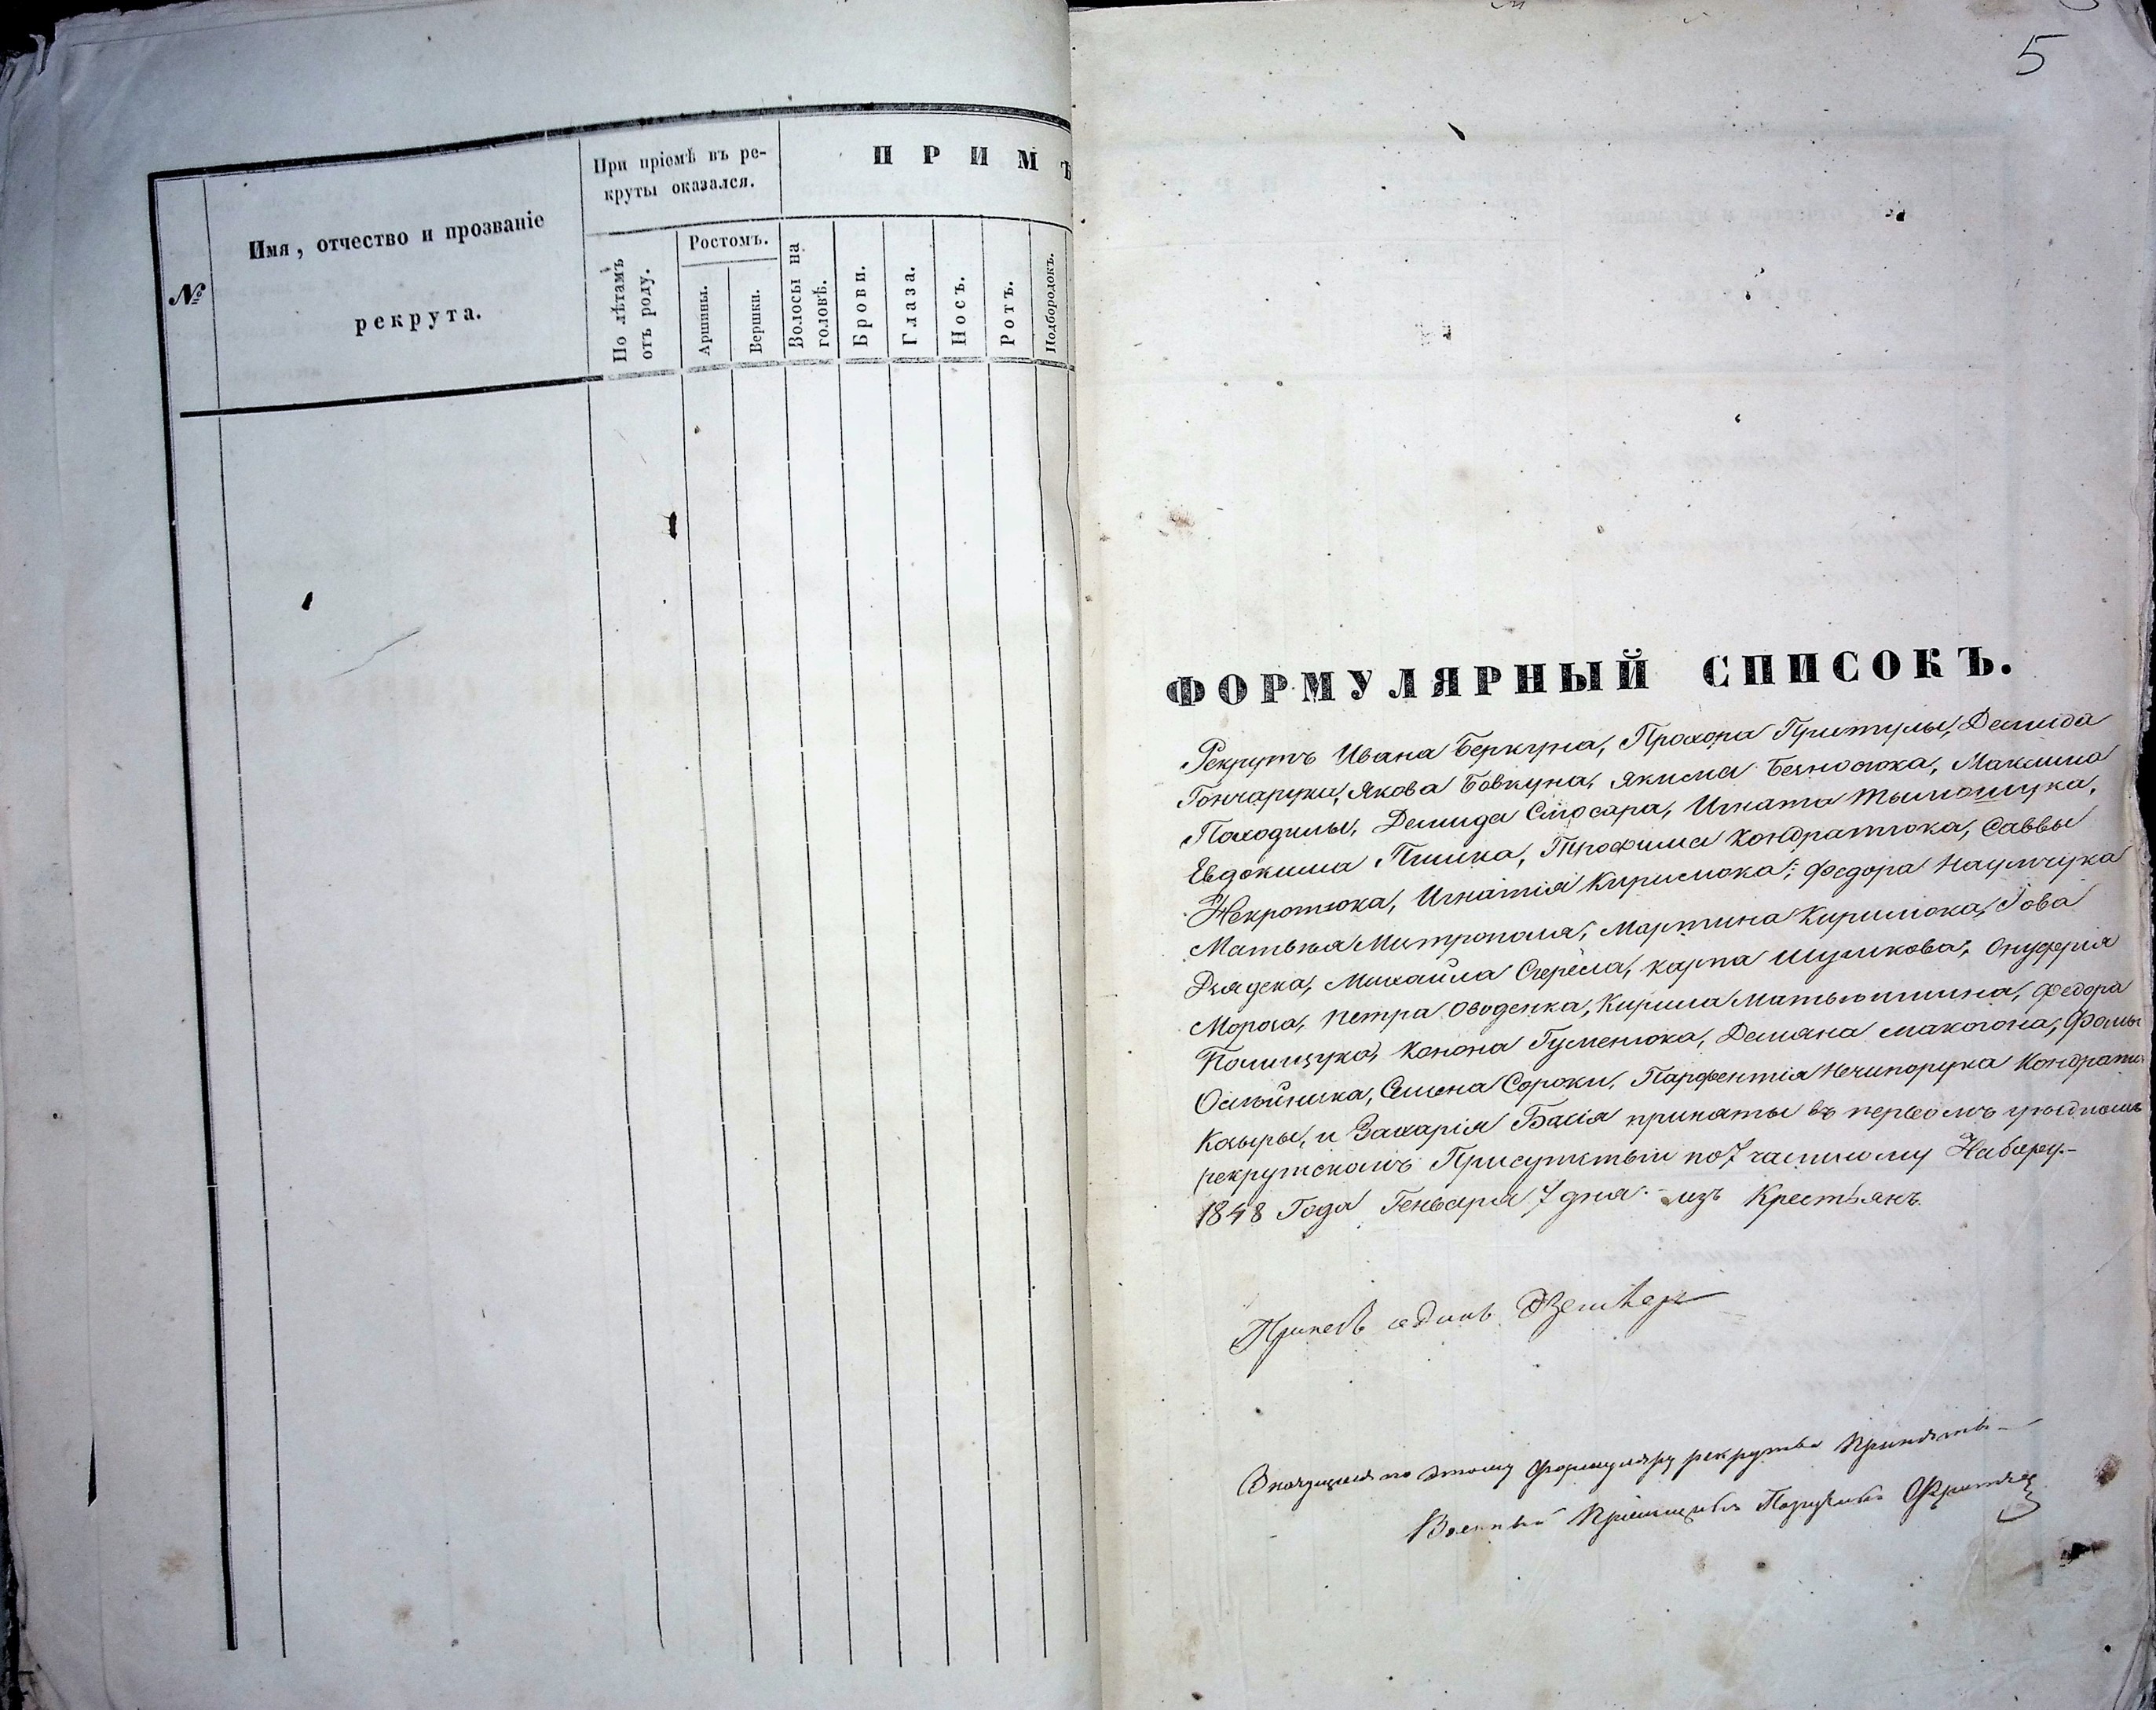 №
Имя, отчество и прозваніе
рекрута.
При пріемѣ въ ре-
круты оказался.
По лѣтамъ
отъ роду.
Ростомъ.
Аршины.
Вершки.
ПРИМѢ
Волосы на
головѣ.
Брови.
Глаза.
Носъ.
Ротъ.
Подбородокъ.
5
ФОРМУЛЯРНЫЙ СПИСОКЪ.
Рекрутъ Ивана Беркуна, Прохора Притулы, Демида
Гончарука, Якова Бовкуна, Якима Максима
Походилы, Демида Слюсара, Игната Тымошука,
Евдокима Пшика, Трофима Кондратюка, Саввы
Некротюка, Игнатія Кирилюка, Федора Наумчука
Матвѣя Митрополя, Мартина Кирилюка, Іова
Михайла Карпа Шуликова, Онуфрія
Мороза, Петра Оводенка, Кирила Федора
Полищука, Конона Гуменюка, Демяна Макогона, Фомы
Олѣйника, Семена Сороки, Парфентія Нечипорука Кондрата
и Захарія приняты въ первомъ уѣздномъ
рекрутскомъ Присутствіи по 7 частному Набору.-
1848 Года Генваря 7 дня. - изъ Крестьянъ.
по этому формуляру рекруты Приняты
Военный Пріемщикъ Поручикъ